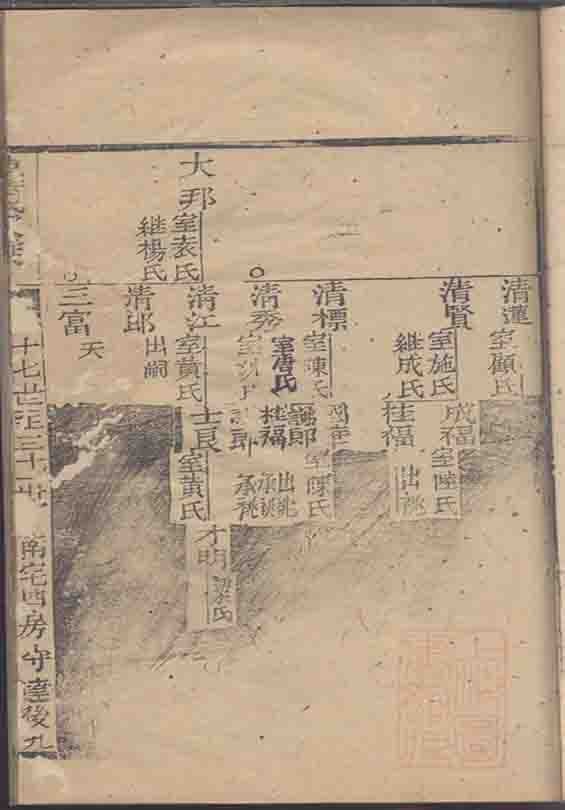 清蓮
室顧氏
清賢
室施氏
繼成氏
成福
室陸氏
桂福
出祧
清標
室陳氏
室陳氏
清秀
室唐氏
桂福
出祧
承祧
大邦
室袁氏
繼楊氏
清江
室黃氏
士良
室黃氏
才明
清郎
出嗣
三富
夭
十七世至三十一世
南宅四房守達後九